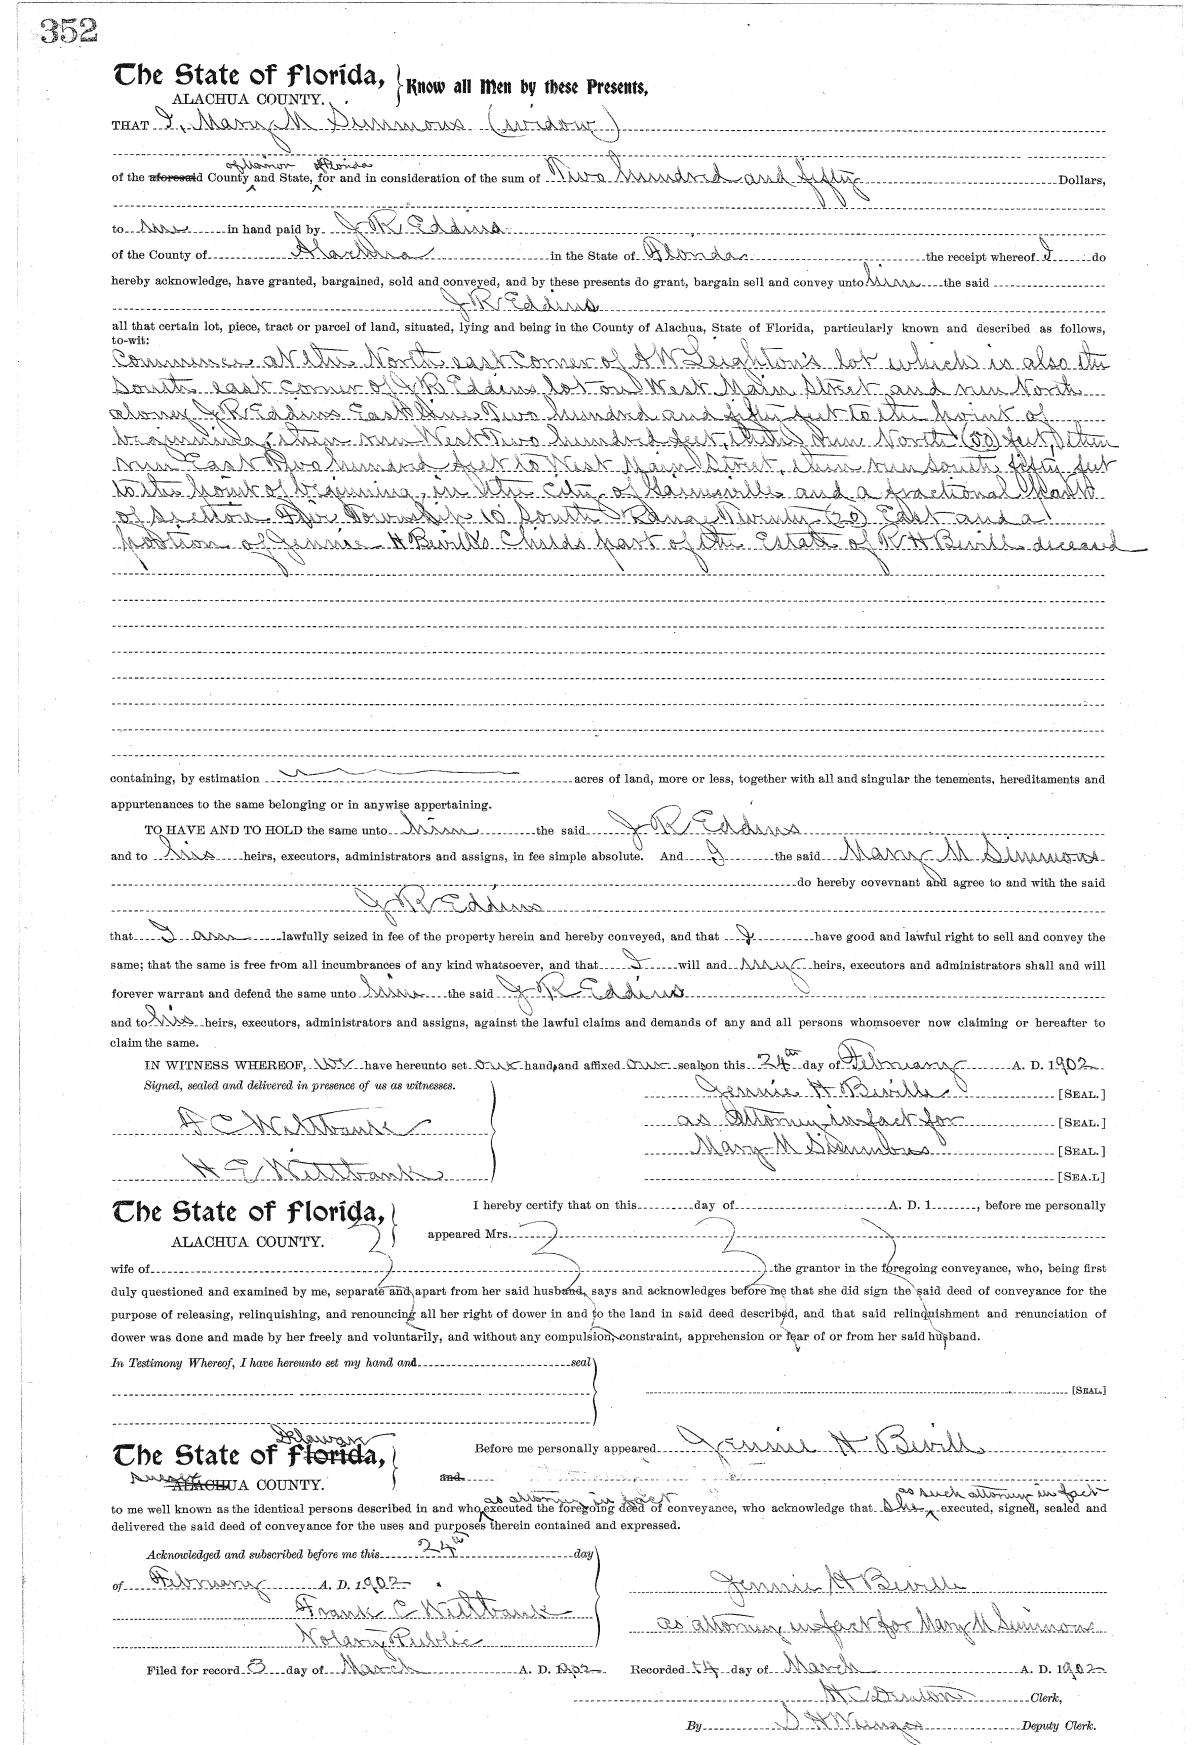 352
The State of Florida, Know all Men by these Presents,
ALACHUA COUNTY.
THAT I, Mary M Simmons (widow)
of Marion Florida
of the aforesaid County and State, for and in consideration of the sum of Two hundred and fifty Dollars,
to me in hand paid by J R Eddins
of the County of Alachua in the State of Florida the receipt whereof I do
hereby acknowledge, have granted, bargained, sold and conveyed, and by these presents do grant, bargain sell and convey unto him the said
J R Eddins
all that certain lot, piece, tract or parcel of land, situated, lying and being in the County of Alachua, State of Florida, particularly known and described as follows,
to-wit:
Commence at the North east corner of A W Leighton's lot which is also the
South east corner of J R Eddins lot on West Main Street and run North
along J R Eddins East line Two hundred and fifty feet to the point of
beginning, then run West Two hundred feet, then run North (50) feet, then
run East Two hundred feet to West Main Street, then run South fifty feet
to the point of beginning, in the City of Gainesville and a fractional part
of Section Township 10 South Range Twenty (20) East and a
portion of Jennie H Bevill's Childs part of the Estate of R H Bevill deceased
containing, by estimation acres of land, more or less, together with all and singular the tenements, hereditaments and
appurtenances to the same belonging or in anywise appertaining.
TO HAVE AND TO HOLD the same unto him the said J R Eddins
and to his heirs, executors, administrators and assigns, in fee simple absolute. And I the said Mary M Simmons
do hereby covevnant and agree to and with the said
J R Eddins
that I am lawfully seized in fee of the property herein and hereby conveyed, and that I have good and lawful right to sell and convey the
same; that the same is free from all incumbrances of any kind whatsoever, and that I will and my heirs, executors and administrators shall and will
forever warrant and defend the same unto him the said J R Eddins
and to his heirs, executors, administrators and assigns, against the lawful claims and demands of any and all persons whomsoever now claiming or hereafter to
claim the same.
IN WITNESS WHEREOF, we have hereunto set our hand, and affixed our seal, on this 24th day of February A. D. 1902
Signed, sealed and delivered in presence of us as witnesses. Jennie H Beville [SEAL.]
F C Wiltbank as Attorney in fact for [SEAL.]
Mary M Simmons [SEAL.]
H E Wiltbank [SEA.L]
The State of Florida, I hereby certify that on this day of A. D. 1 , before me personally
ALACHUA COUNTY. appeared Mrs.
wife of the grantor in the foregoing conveyance, who, being first
duly questioned and examined by me, separate and apart from her said husband, says and acknowledges before me that she did sign the said deed of conveyance for the
purpose of releasing, relinquishing, and renouncing all her right of dower in and to the land in said deed described, and that said relinquishment and renunciation of
dower was done and made by her freely and voluntarily, and without any compulsion, constraint, apprehension or fear of or from her said husband.
In Testimony Whereof, I have hereunto set my hand and seal
[SEAL.]
Delaware
The State of Florida, Before me personally appeared Jennie H Bevill
Sussex ALACHUA COUNTY. and
as attorney in fact as such attorney in fact
to me well known as the identical persons described in and who executed the foregoing deed of conveyance, who acknowledge that she executed, signed, sealed and
delivered the said deed of conveyance for the uses and purposes therein contained and expressed.
Acknowledged and subscribed before me this 24th day
of February A. D. 1902 Jennie H Beville
Frank C Wiltbank as attorney in fact for Mary M Simmons
Notary Public
Filed for record 3 day of March A. D. 1902 Recorded 14 day of March A. D. 1902
H C Denton Clerk,
By S H Wienges Deputy Clerk.